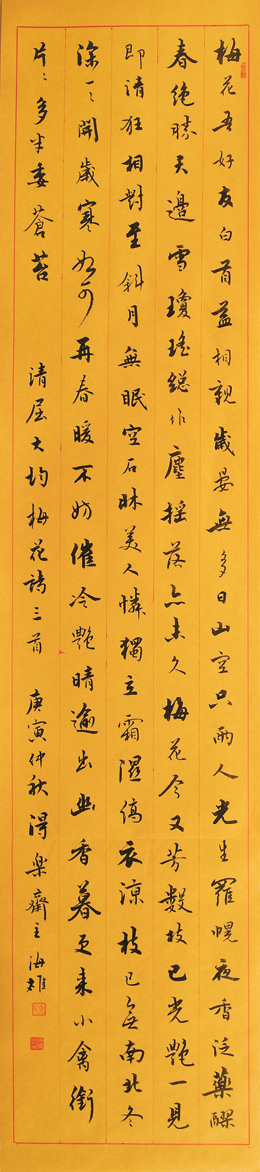 梅花吾好友白首益相親歲晏無多日山空只兩人光生羅幌夜香泛藥醪
春絶勝天邊雪瓊瑤總作塵摇落亦未久梅花今又芳數枝已光艷一見
即清狂相對至斜月無眠空石牀美人憐獨立霜濕縞衣凉枝已無南北冬
深一一開歲寒如可再春暖不妨催冷艷晴逾出幽香暮更来小禽銜
片片多半委蒼苔
清屈大均梅花詩三首 庚寅仲秋得樂齋主海雄